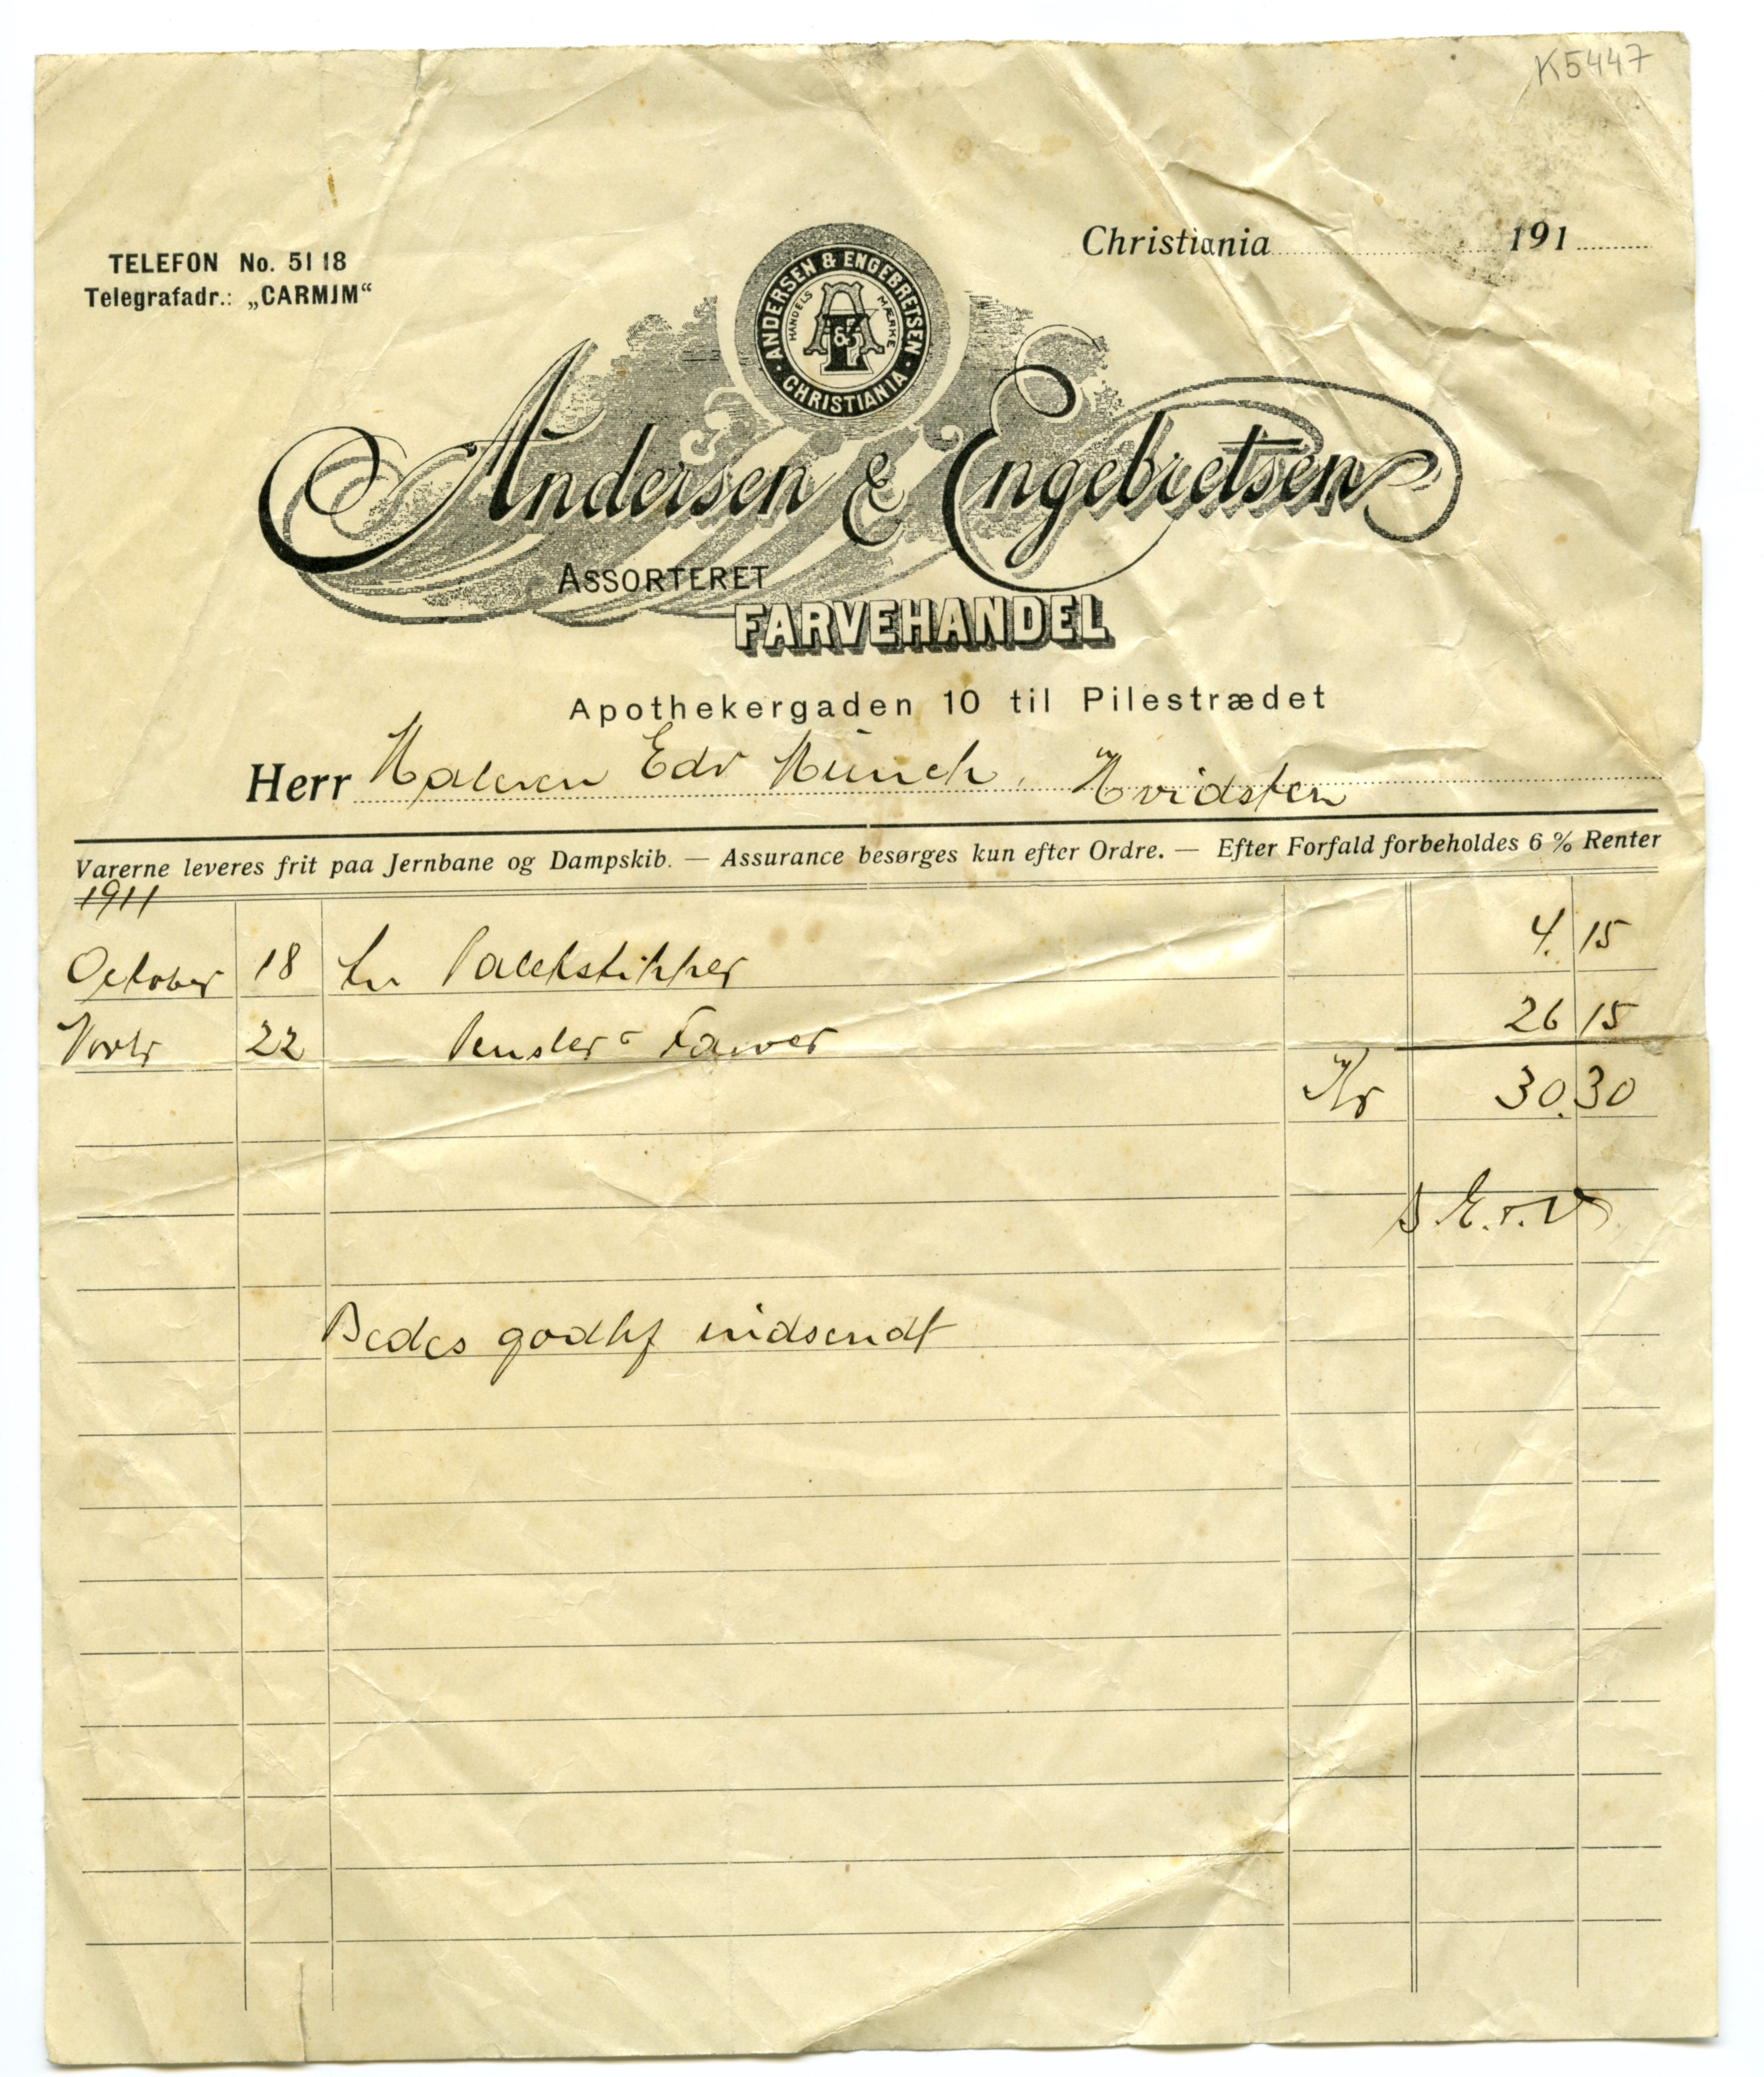 K5447
TELEFON No. 5118
Telegrafadr.: „CARMJM“
Christiania 191
ANDERSEN & ENGEBRETSEN
HANDELS MÆRKE
A & E
CHRISTIANIA
Andersen & Engebretsen
ASSORTERET
FARVEHANDEL
Apothekergaden 10 til Pilestrædet
Herr Maleren Edv Münch, Hvidsten
Varerne leveres frit paa Jernbane og Dampskib. — Assurance besørges kun efter Ordre. — Efter Forfald forbeholdes 6 % Renter
1911
October 18 4. 15
Novbr 22 Pensler Farver 26 15
Kr 30.30
Bedes godhf indsendt